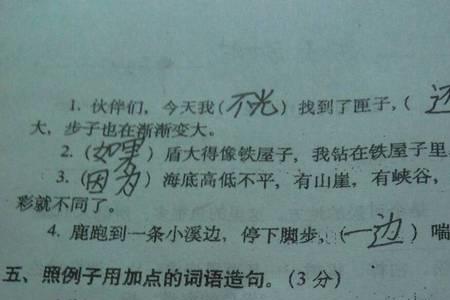 1. 伙伴们，今天我（不光）找到了匣子，（还
大，步子也在渐渐变大。
2.（如果）盾大得像铁屋子，我钻在铁屋子里
3.（因为）海底高低不平，有山崖，有峡谷，
彩就不同了。
4. 鹿跑到一条小溪边，停下脚步，（一边）喘
五、照例子用加点的词语造句。(3分)